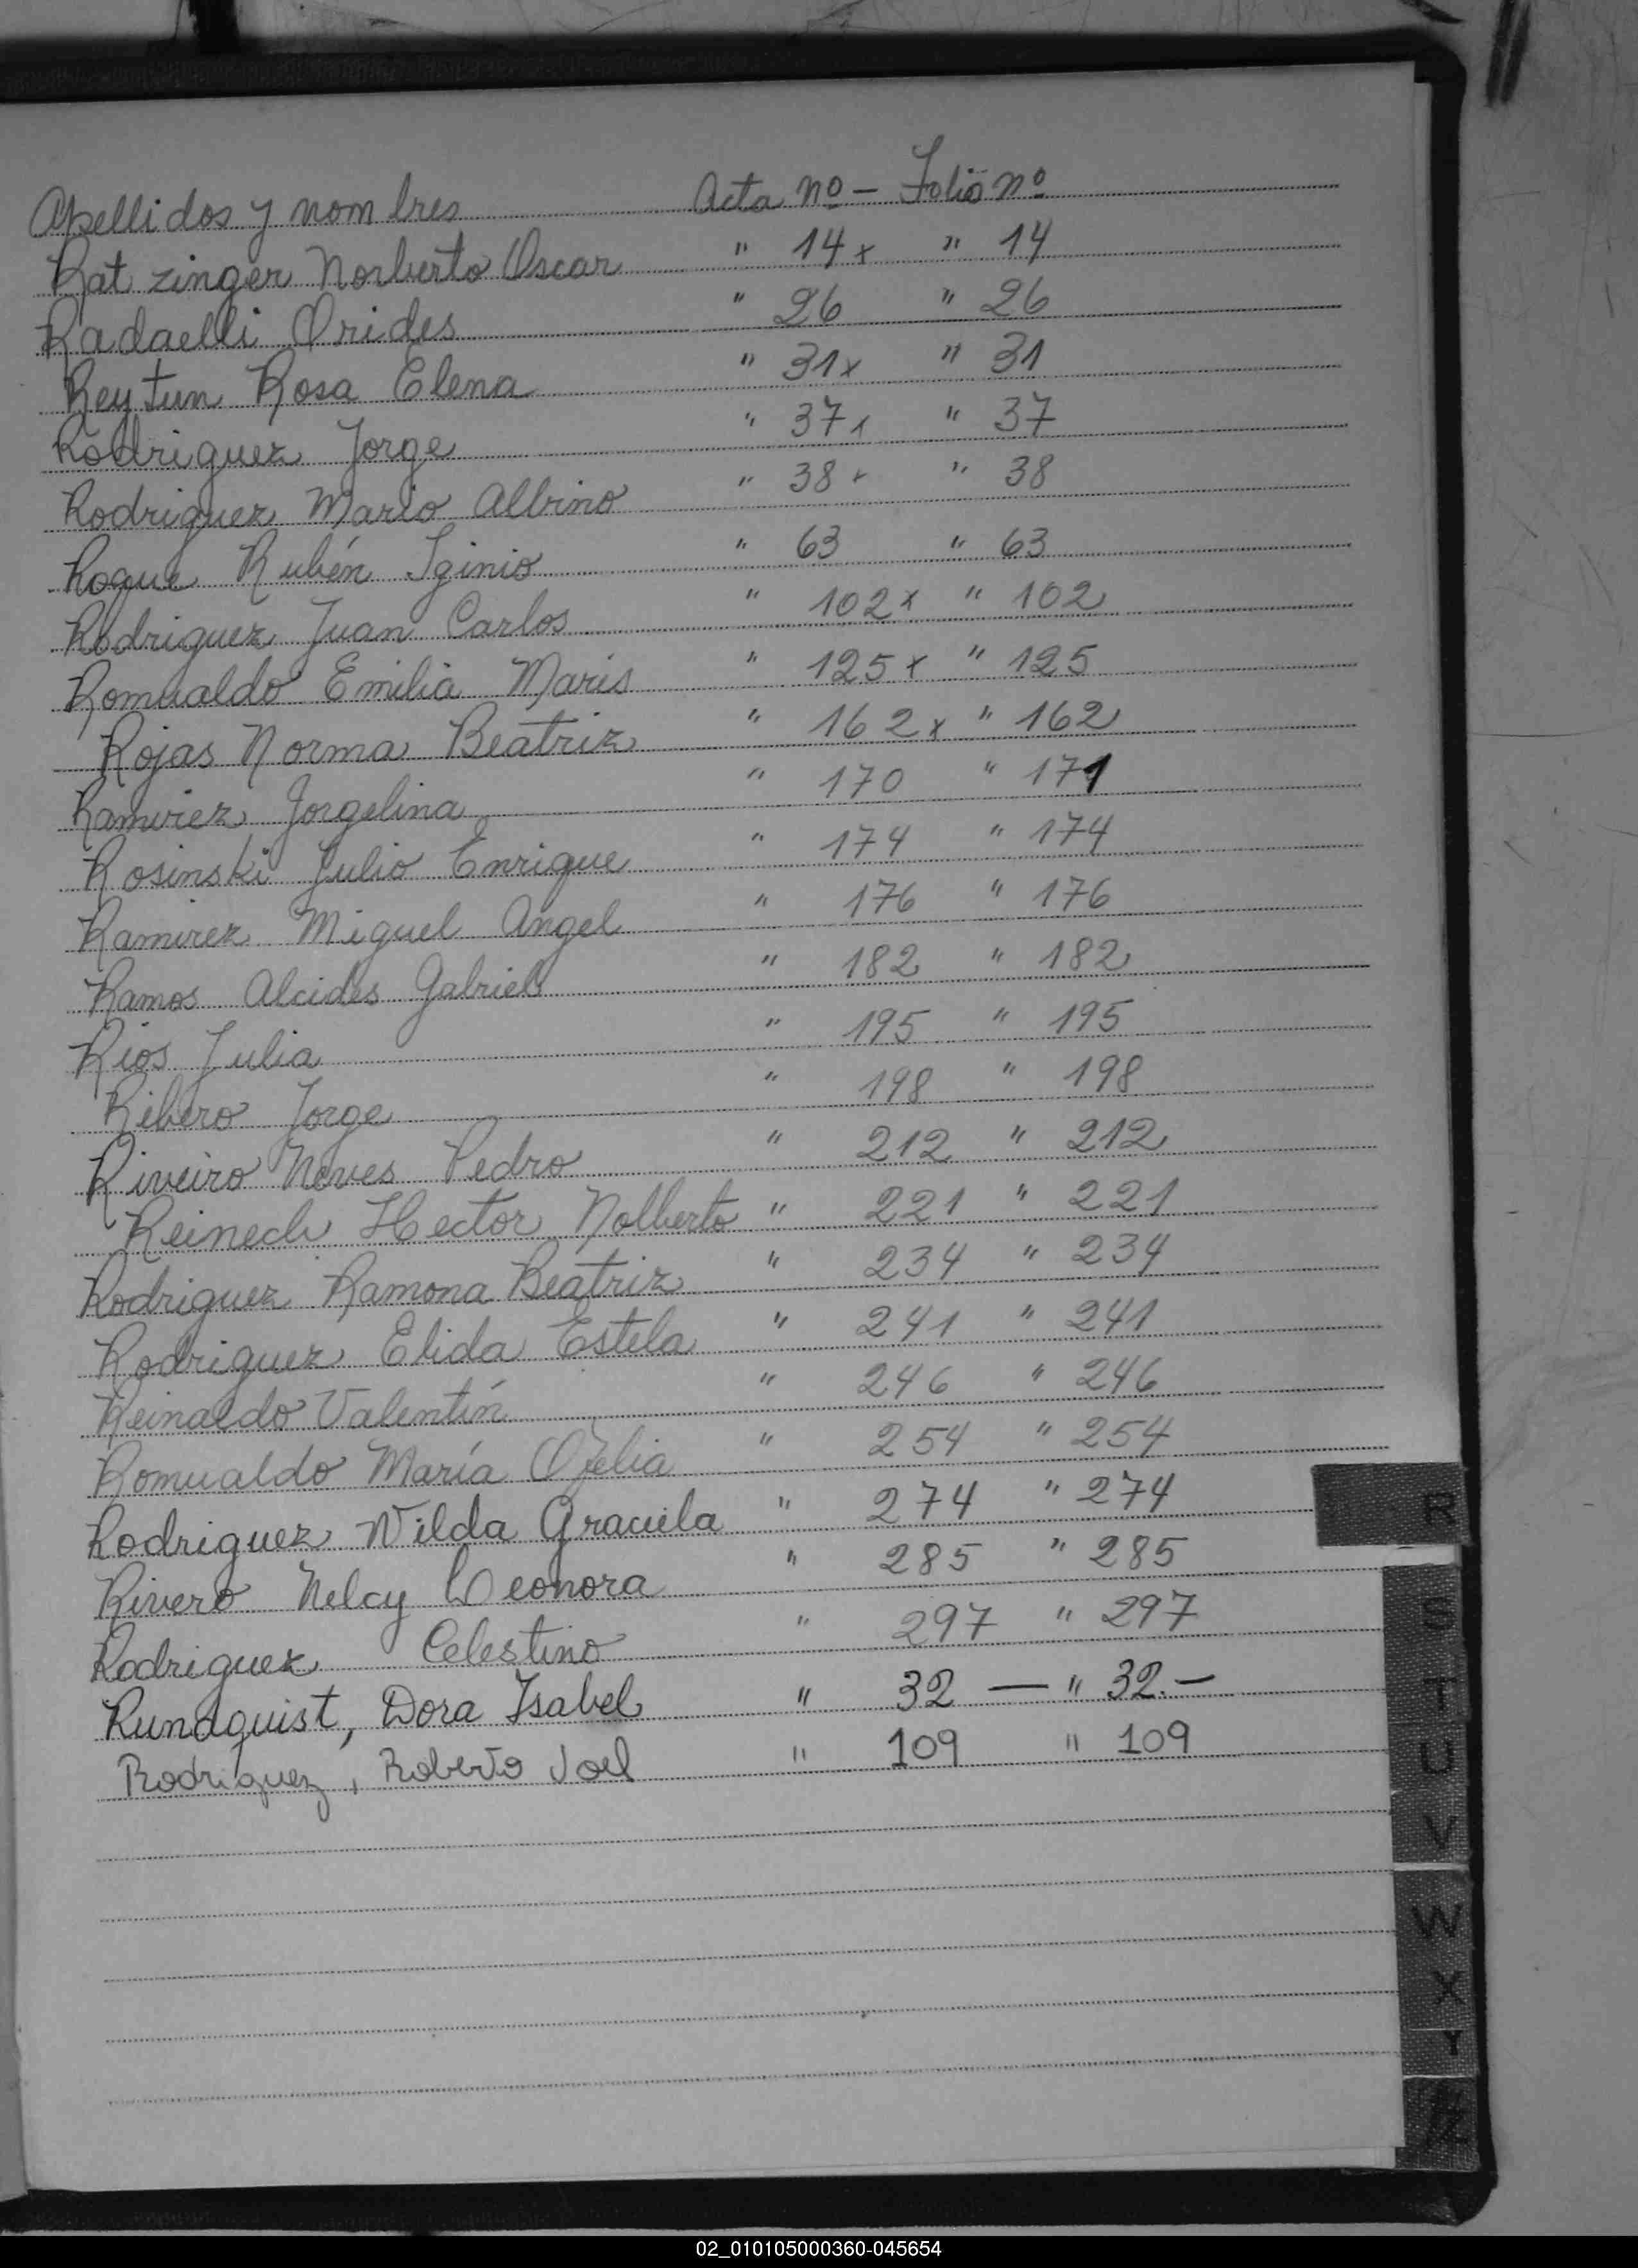 Apellidos y nombres Acta Nº - Folio Nº
Ratzinger Norberto Oscar " 14 x " 14
Radaelli Orides " 26 " 26
Reytun Rosa Elena " 31 x " 31
Rodriguez Jorge " 37 x " 37
Rodriguez Mario Albino " 38 x " 38
Roque Rubén Iginio " 63 " 63
Rodriguez Juan Carlos " 102 x " 102
Romualdo Emilia Maris " 125 x " 125
Rojas Norma Beatriz " 162 x " 162
Ramirez Jorgelina " 170 " 171
Rosinski Julio Enrique " 174 " 174
Ramirez Miguel Angel " 176 " 176
Ramos Alcides Gabriel " 182 " 182
Rios Julia " 195 " 195
Ribero Jorge " 198 " 198
Riveiro Neves Pedro " 212 " 212
Reinech Hector Nolberto " 221 " 221
Rodriguez Ramona Beatriz " 234 " 234
Rodriguez Elida Estela " 241 " 241
Reinaldo Valentín " 246 " 246
Romualdo María Ofelia " 254 " 254
Rodriguez Nilda Graciela " 274 " 274
Rivero Nelcy Leonora " 285 " 285
Rodriguez Celestino " 297 " 297
Rundquist, Dora Isabel " 32 — " 32.—
Rodriguez, Roberto Joel " 109 " 109
R
S
T
U
V
W
X
Y
Z
02_010105000360-045654